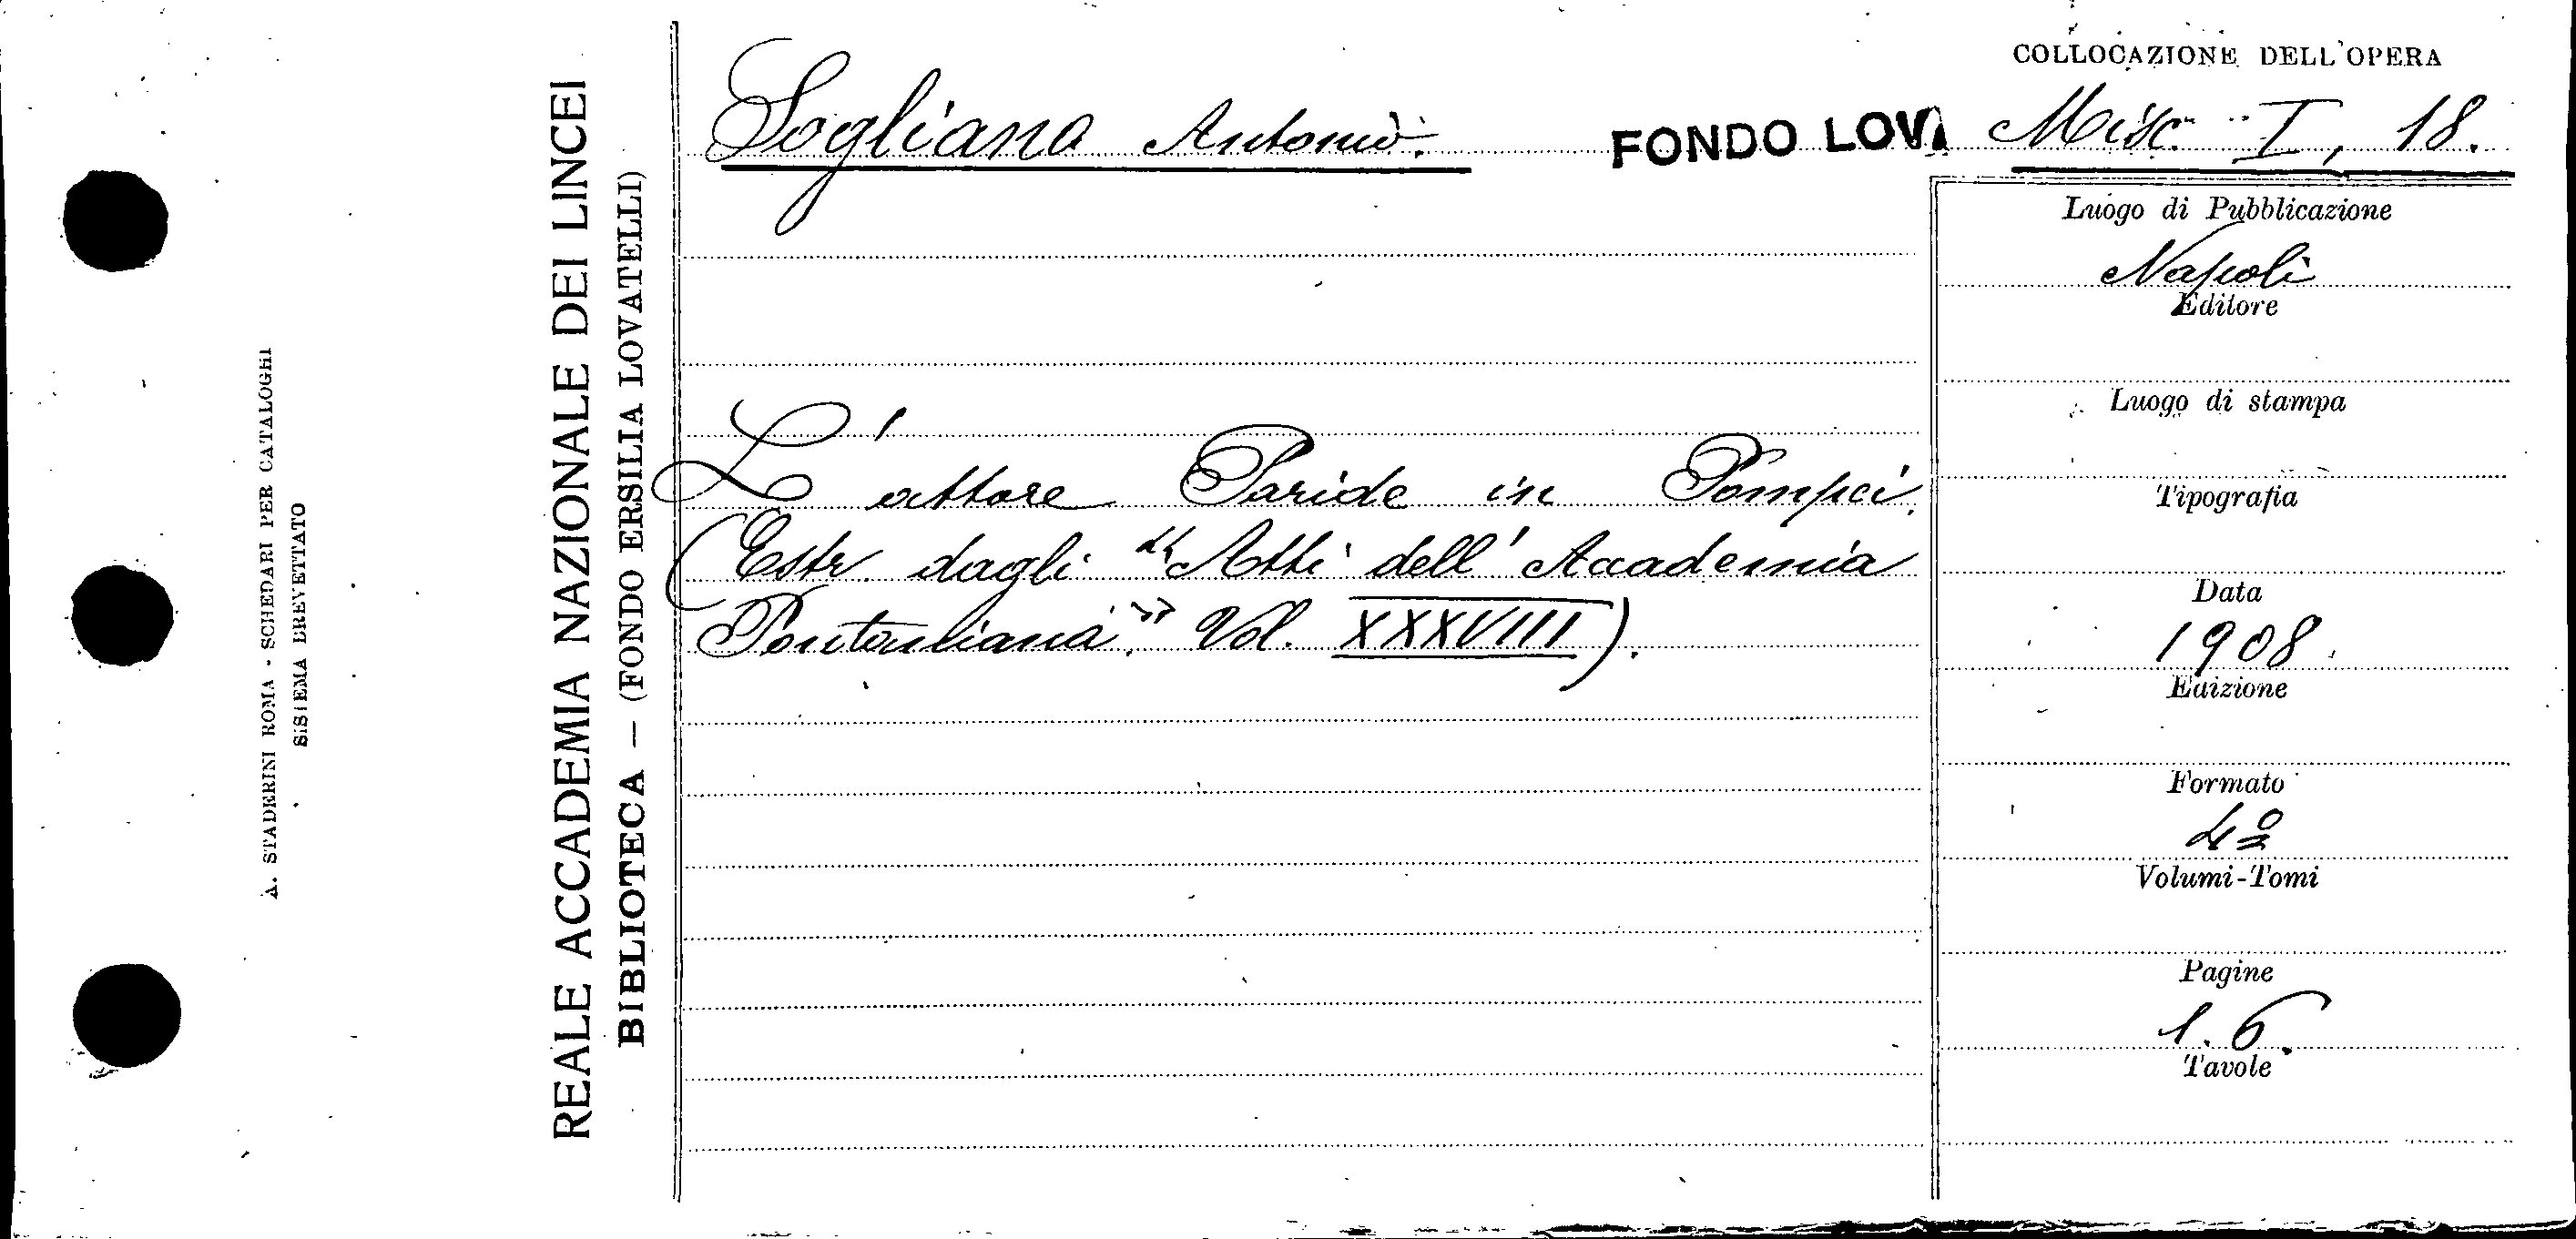 A. STADERINI ROMA - SCHEDARI PER CATALOGHI
SISTEMA BREVETTATO
REALE ACCADEMIA NAZIONALE DEI LINCEI
BIBLIOTECA — (FONDO ERSILIA LOVATELLI)
Sogliano Antonio.
FONDO LOVA
COLLOCAZIONE DELL'OPERA
Misc. I, 18.
L'attore Paride in Pompei.
(Estr. dagli "Atti dell'Accademia
Pontaniana." Vol. XXXVIII).
Luogo di Pubblicazione
Napoli
Editore
Luogo di stampa
Tipografia
Data
1908.
Edizione
Formato
4º
Volumi-Tomi
Pagine
1.6.
Tavole